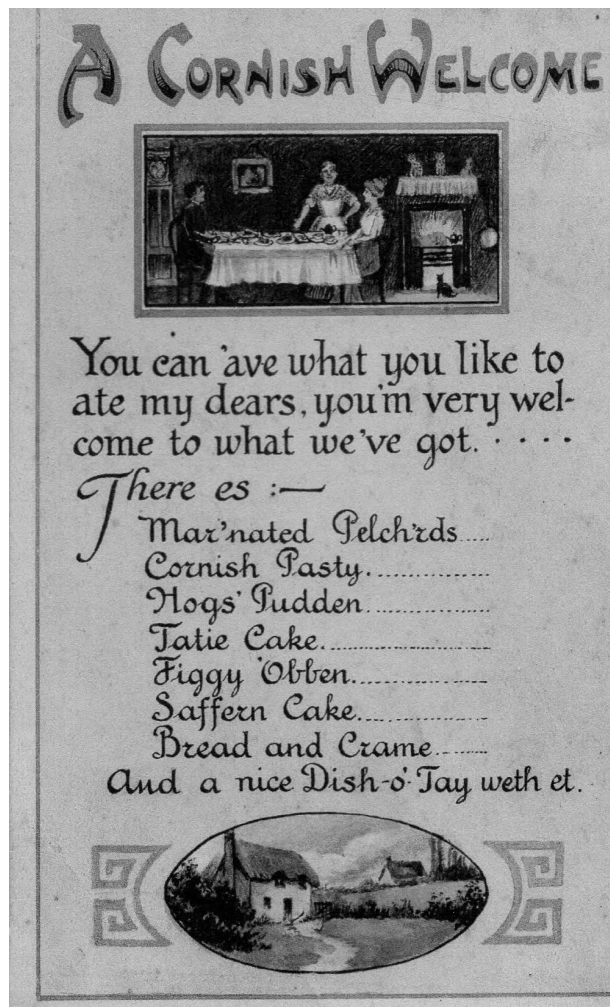 A CORNISH WELCOME
You can 'ave what you like to
ate my dears, you'm very wel-
come to what we've got. . . . .
There es :—
Mar'nated Pelch'rds.....
Cornish Pasty..............
Hogs' Pudden..............
Tatie Cake...................
Figgy 'Obben...............
Saffern Cake...............
Bread and Crame........
And a nice Dish-o'-Tay weth et.